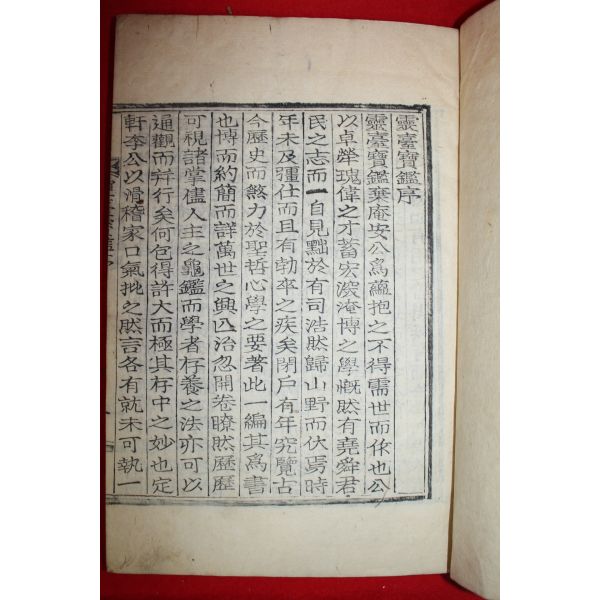 靈臺寶鑑序
靈臺寶鑑棄庵安公爲蘊抱之不得需世而作也公
以卓犖瑰偉之才蓄宏深淹博之學慨然有堯舜君
民之志而一自見黜於有司浩然歸山野而伏焉時
年未及彊仕而且有勃窣之疾矣閉戶有年究覽古
今歷史而煞力於聖哲心學之要著此一編其爲書
也博而約簡而詳萬世之興亡治忽開卷瞭然歷歷
可視諸掌儘人主之龜鑑而學者存養之法亦可以
通觀而幷行矣何包得許大而極其存中之妙也定
軒李公以滑稽家口氣批之然言各有就未可執一